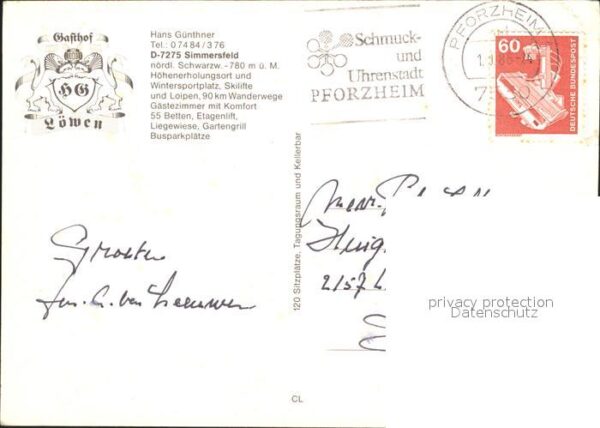 Gasthof
HG
Löwen
Hans Günthner
Tel.: 07484/376
D-7275 Simmersfeld
nördl. Schwarzw. - 780 m ü. M.
Höhenerholungsort und
Wintersportplatz, Skilifte
und Loipen, 90 km Wanderwege
Gästezimmer mit Komfort
55 Betten, Etagenlift,
Liegewiese, Gartengrill
Busparkplätze
Schmuck-
und
Uhrenstadt
PFORZHEIM
PFORZHEIM
60
DEUTSCHE BUNDESPOST
120 Sitzplätze, Tagungsraum und Kellerbar
Groeten
fam. v. Leeuwen
2157
privacy protection
Datenschutz
CL